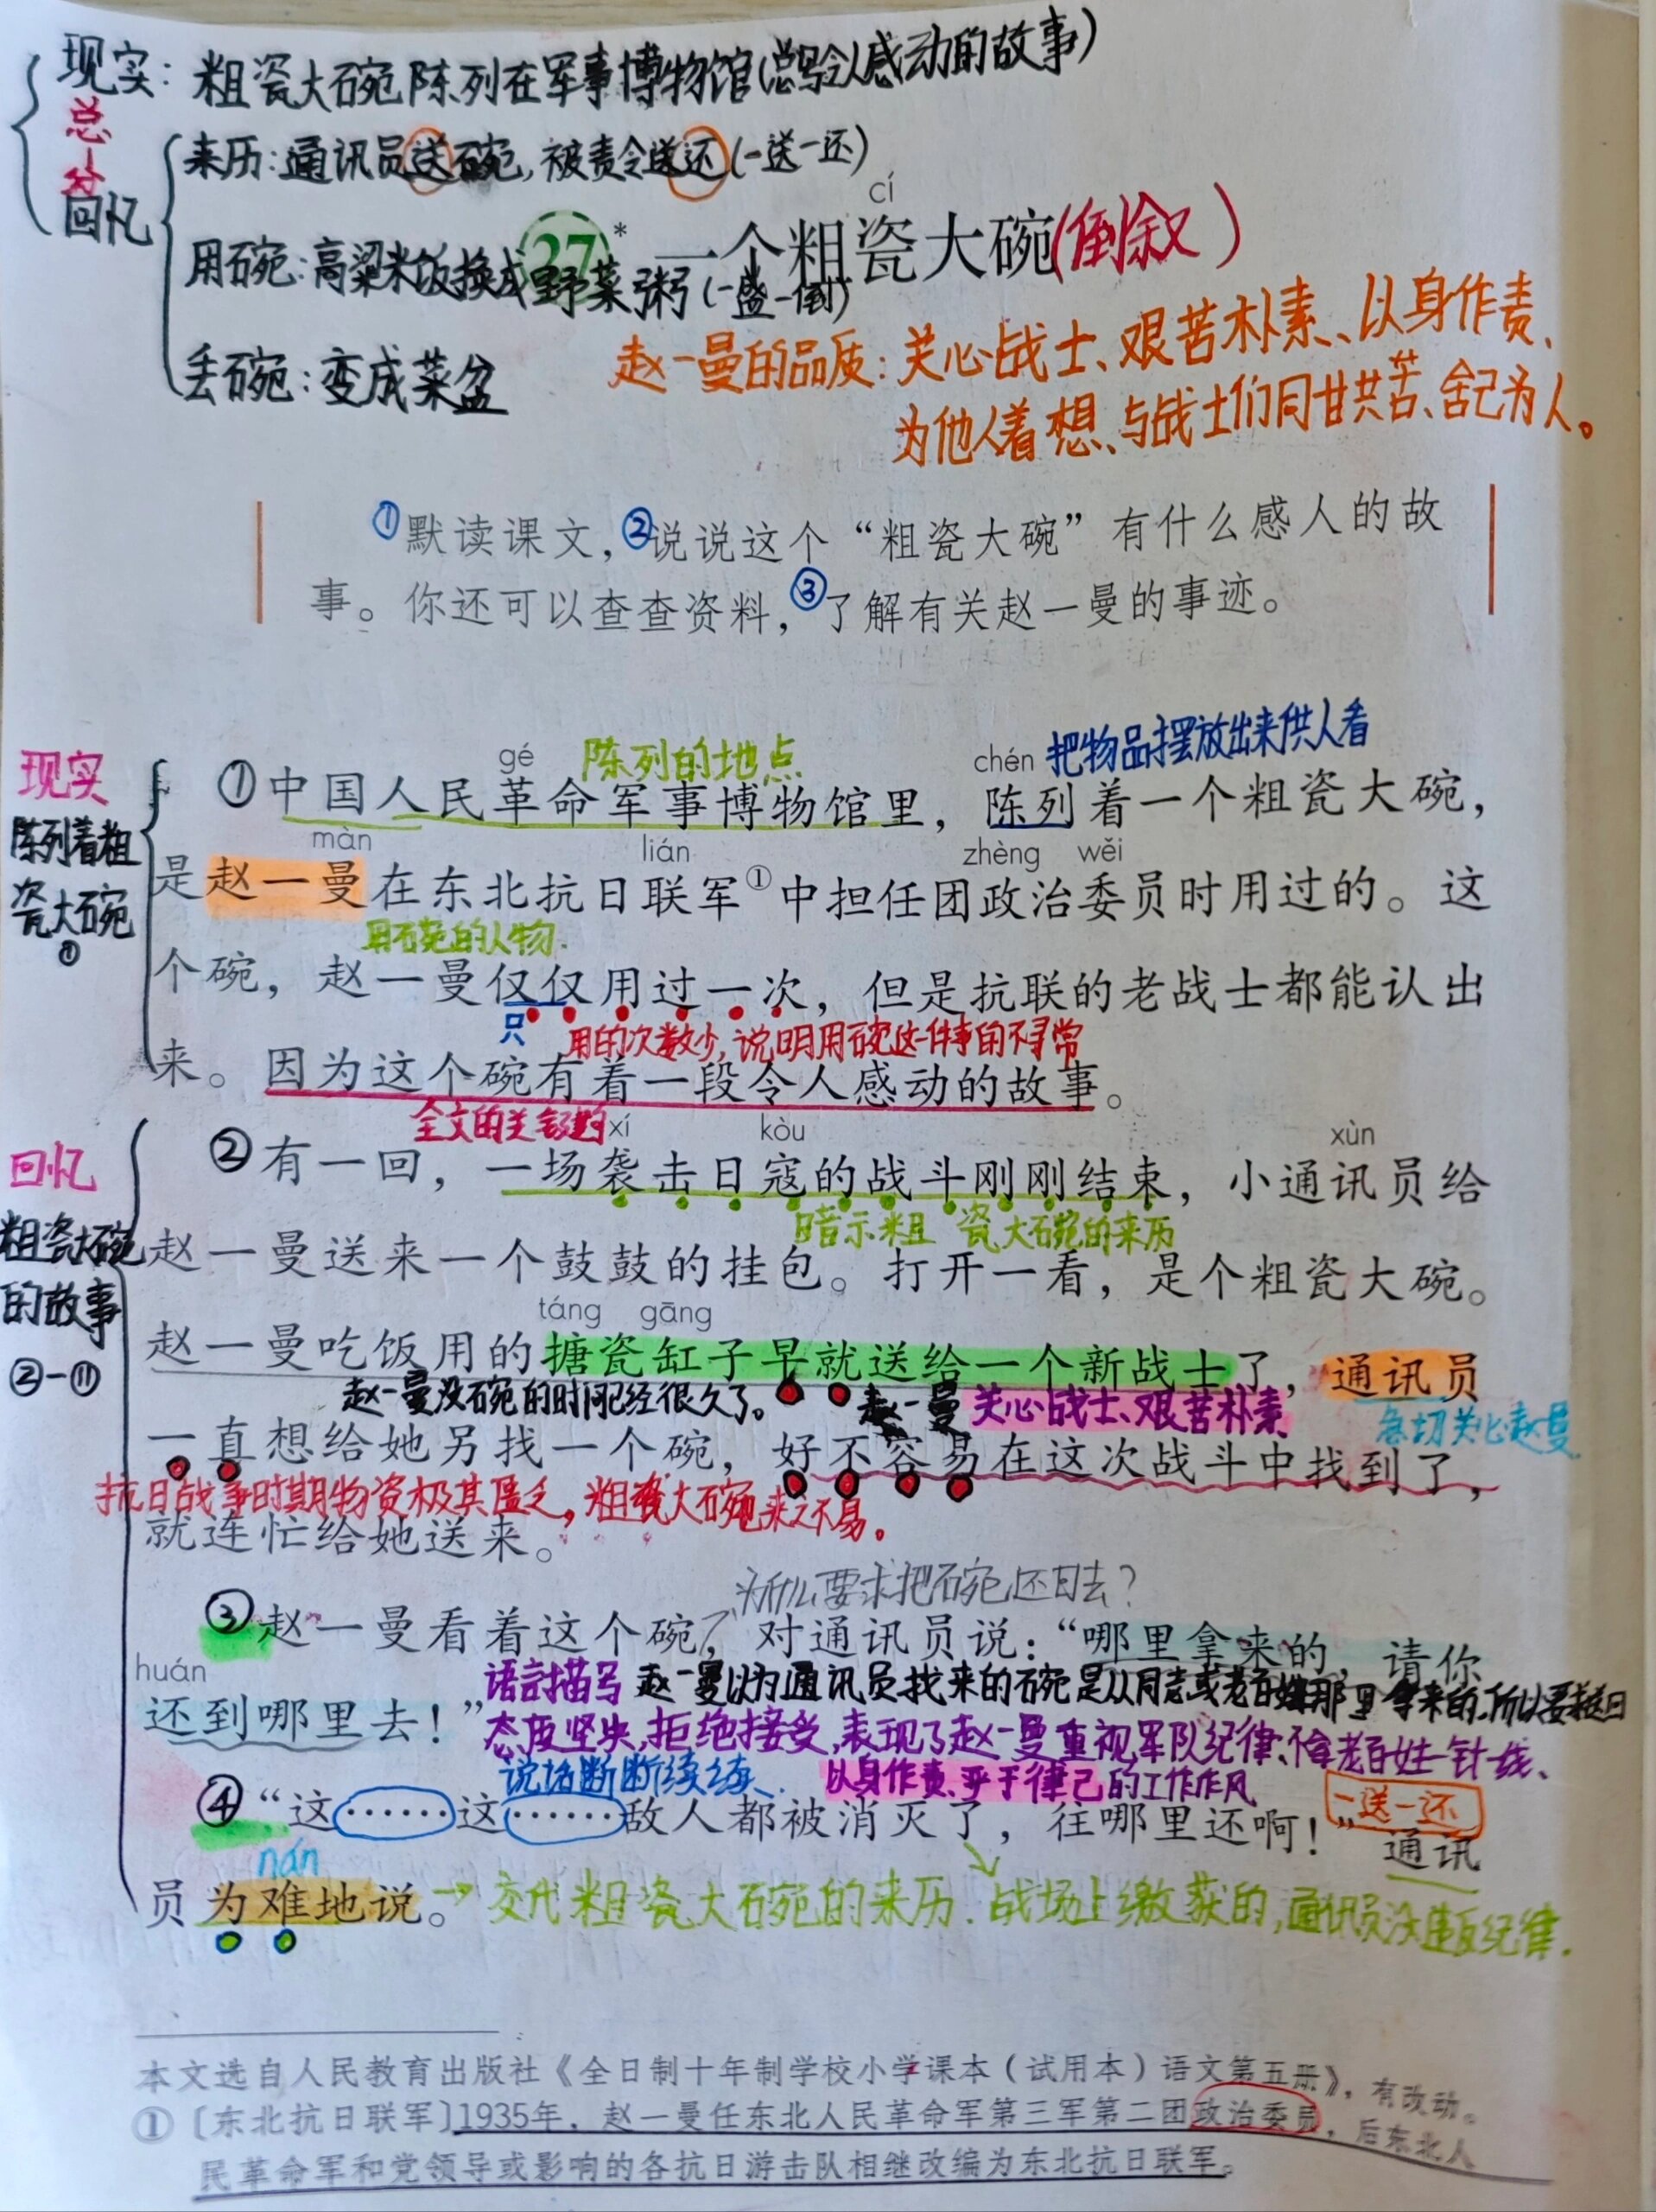 现实：粗瓷大碗陈列在军事博物馆(总写令人感动的故事)
总
分
回忆
来历：通讯员送碗，被责令送还(一送一还)
cí
27* 一个粗瓷大碗(倒叙)
用碗：高粱米饭换成野菜粥(一盛一倒)
丢碗：变成菜盆
赵一曼的品质：关心战士、艰苦朴素、以身作责、
为他人着想、与战士们同甘共苦、舍己为人。
①默读课文，②说说这个“粗瓷大碗”有什么感人的故
事。你还可以查查资料，③了解有关赵一曼的事迹。
现实
陈列着粗
瓷大碗
①
gé 陈列的地点 chén 把物品摆放出来供人看
①中国人民革命军事博物馆里，陈列着一个粗瓷大碗，
màn lián zhèng wěi
是赵一曼在东北抗日联军①中担任团政治委员时用过的。这
用碗的人物.
个碗，赵一曼仅仅用过一次，但是抗联的老战士都能认出
只 用的次数少，说明用碗这一件事的不寻常
来。因为这个碗有着一段令人感动的故事。
全文的关键句
回忆
粗瓷大碗
的故事
②-⑪
xí kòu xùn
②有一回，一场袭击日寇的战斗刚刚结束，小通讯员给
暗示粗瓷大碗的来历
赵一曼送来一个鼓鼓的挂包。打开一看，是个粗瓷大碗。
táng gāng
赵一曼吃饭用的搪瓷缸子早就送给一个新战士了，通讯员
赵一曼没碗的时间已经很久了。 赵一曼关心战士、艰苦朴素 急切关心赵一曼
一直想给她另找一个碗，好不容易在这次战斗中找到了，
抗日战争时期物资极其匮乏，粗瓷大碗来之不易。
就连忙给她送来。
为什么要求把碗还回去？
③赵一曼看着这个碗，对通讯员说：“哪里拿来的，请你
huán
语言描写 赵一曼以为通讯员找来的碗是从同志或老百姓那里拿来的，所以要送回
还到哪里去！”
态度坚决，拒绝接受，表现了赵一曼重视军队纪律、不拿老百姓一针一线、
说话断断续续. 以身作责、严于律己的工作作风
一送一还
④“这……这……敌人都被消灭了，往哪里还啊！”通讯
nán
员为难地说。→交代粗瓷大碗的来历.战场上缴获的，通讯员没违反纪律.
本文选自人民教育出版社《全日制十年制学校小学课本（试用本）语文第五册》，有改动。
①〔东北抗日联军〕1935年，赵一曼任东北人民革命军第三军第二团政治委员，后东北人
民革命军和党领导或影响的各抗日游击队相继改编为东北抗日联军。